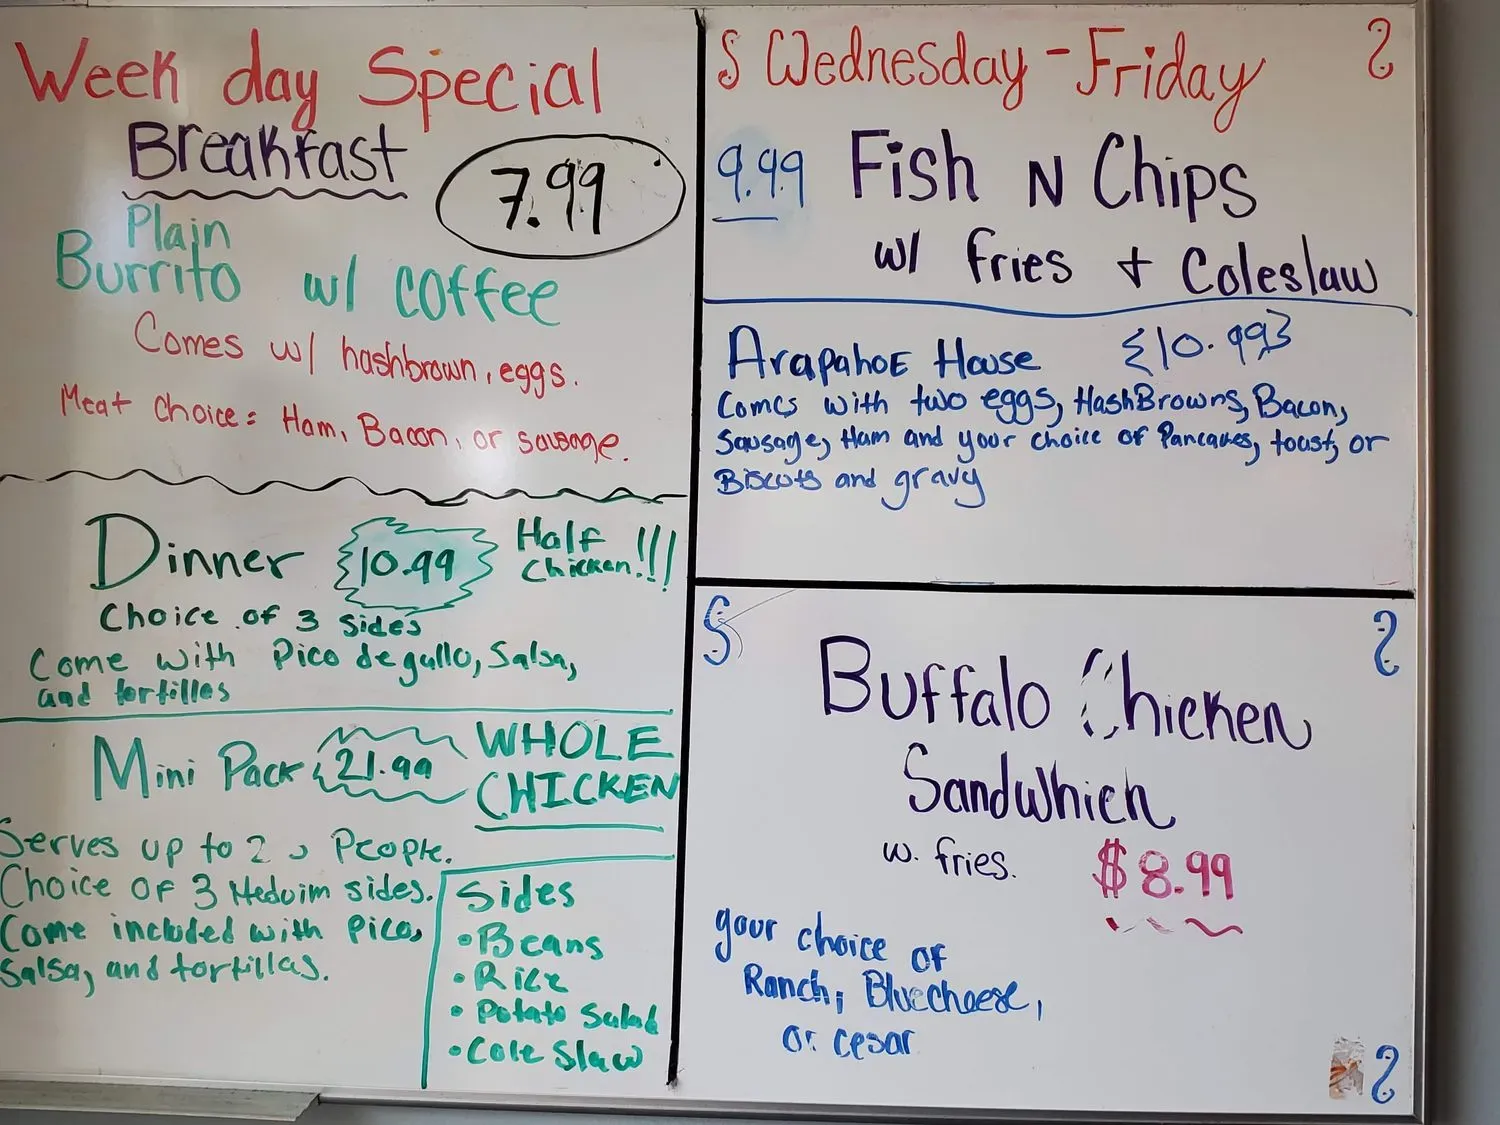 Week day Special
Breakfast
7.99
Plain
Burrito w/ coffee
Comes w/ hashbrown, eggs.
Meat choice: Ham, Bacon, or sausage.
Dinner 10.99 Half
Chicken!!!
Choice of 3 sides
Come with Pico de gallo, Salsa,
and tortillas
Mini Pack 21.99 WHOLE
CHICKEN
Serves up to 2 People.
Choice of 3 Meduim sides.
Come included with Pico,
Salsa, and tortillas.
Sides
• Beans
• Rice
• Potato Salad
• Cole Slaw
Wednesday - Friday
9.99 Fish N Chips
w/ fries + Coleslaw
ArapahoE House {10.99}
Comes with two eggs, HashBrowns, Bacon,
Sausage, Ham and your choice of Pancakes, toast, or
Biscuts and gravy
Buffalo Chicken
Sandwhich
w. fries. $8.99
your choice of
Ranch, Bluecheese,
or cesar